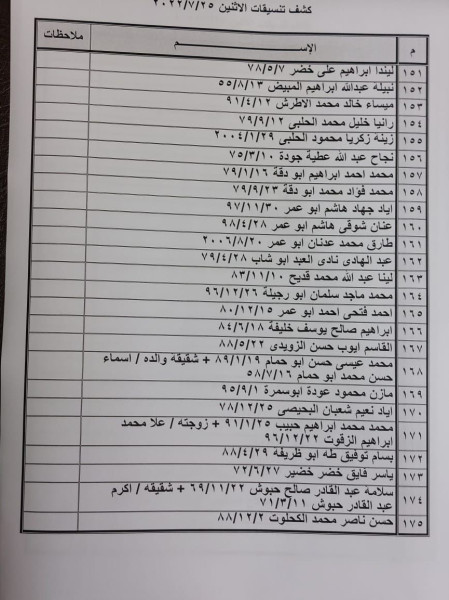 كشف تنسيقات الاثنين ٢٠٢٢/٧/٢٥
م الإســـم ملاحظات
١٥١ ليندا ابراهيم على خضر ٧٨/٥/٧
١٥٢ نبيلة عبدالله ابراهيم المبيض ٥٥/٨/١٣
١٥٣ ميساء خالد محمد الاطرش ٩١/٤/١٢
١٥٤ رانيا خليل محمد الحلبى ٧٩/٩/١٢
١٥٥ زينة زكريا محمود الحلبى ٢٠٠٤/١/٢٩
١٥٦ نجاح عبد الله عطية جودة ٧٥/٣/١٠
١٥٧ محمد احمد ابراهيم ابو دقة ٧٩/١/١٦
١٥٨ محمد فؤاد محمد ابو دقة ٧٩/٩/٢٣
١٥٩ اياد جهاد هاشم ابو عمر ٩٧/١١/٣٠
١٦٠ عنان شوقى هاشم ابو عمر ٩٨/٤/٢٨
١٦١ طارق محمد عدنان ابو عمر ٢٠٠٦/٨/٢٠
١٦٢ عبد الهادى نادى العبد ابو شاب ٧٩/٤/٢٨
١٦٣ لينا عبد الله محمد قديح ٨٣/١١/١٠
١٦٤ محمد ماجد سلمان ابو رجيلة ٩٦/١٢/٢٦
١٦٥ احمد فتحى احمد ابو عمر ٨٠/١٢/١٥
١٦٦ ابراهيم صالح يوسف خليفة ٨٤/٦/١٨
١٦٧ القاسم ايوب حسن الزويدى ٨٨/٥/٢٢
١٦٨ محمد عيسى حسن ابو حمام ٨٩/١/١٩ + شقيقة والده / اسماء
حسن محمد ابو حمام ٥٨/٧/١٦
١٦٩ مازن محمود عودة ابوسمرة ٩٥/٩/١
١٧٠ اياد نعيم شعبان البحيصى ٧٨/١٢/٢٥
١٧١ محمد محمد ابراهيم حبيب ٩١/١/٢٥ + زوجته / علا محمد
ابراهيم الزقوت ٩٦/١٢/٢٢
١٧٢ بسام توفيق طه ابو ظريفة ٨٨/٤/٢٩
١٧٣ ياسر فايق خضر خضير ٧٢/٦/٢٧
١٧٤ سلامة عبد القادر صالح حبوش ٦٩/١١/٢٢ + شقيقه / اكرم
عبد القادر حبوش ٧١/٣/١١
١٧٥ حسن ناصر محمد الكحلوت ٨٨/١٢/٢